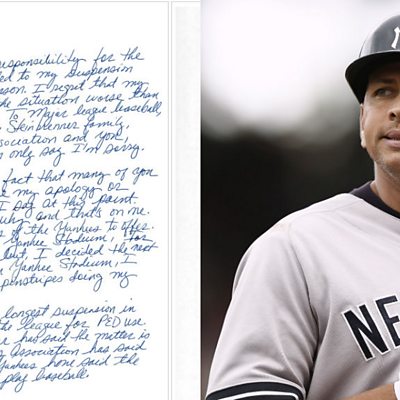 responsibility for the
led to my suspension
son. I regret that my
he situation worse than
To Major league baseball,
Steinbrenner family,
ssociation and you,
n only say I'm sorry.
fact that many of you
my apology or
I say at this point.
why and that's on me.
of the Yankees to offer
Yankee Stadium, for
but I decided the next
Yankee Stadium, I
penstripes doing my
longest suspension in
the league for PED use.
r has said the matter is
Association has said
Yankees have said the
play baseball.
NE